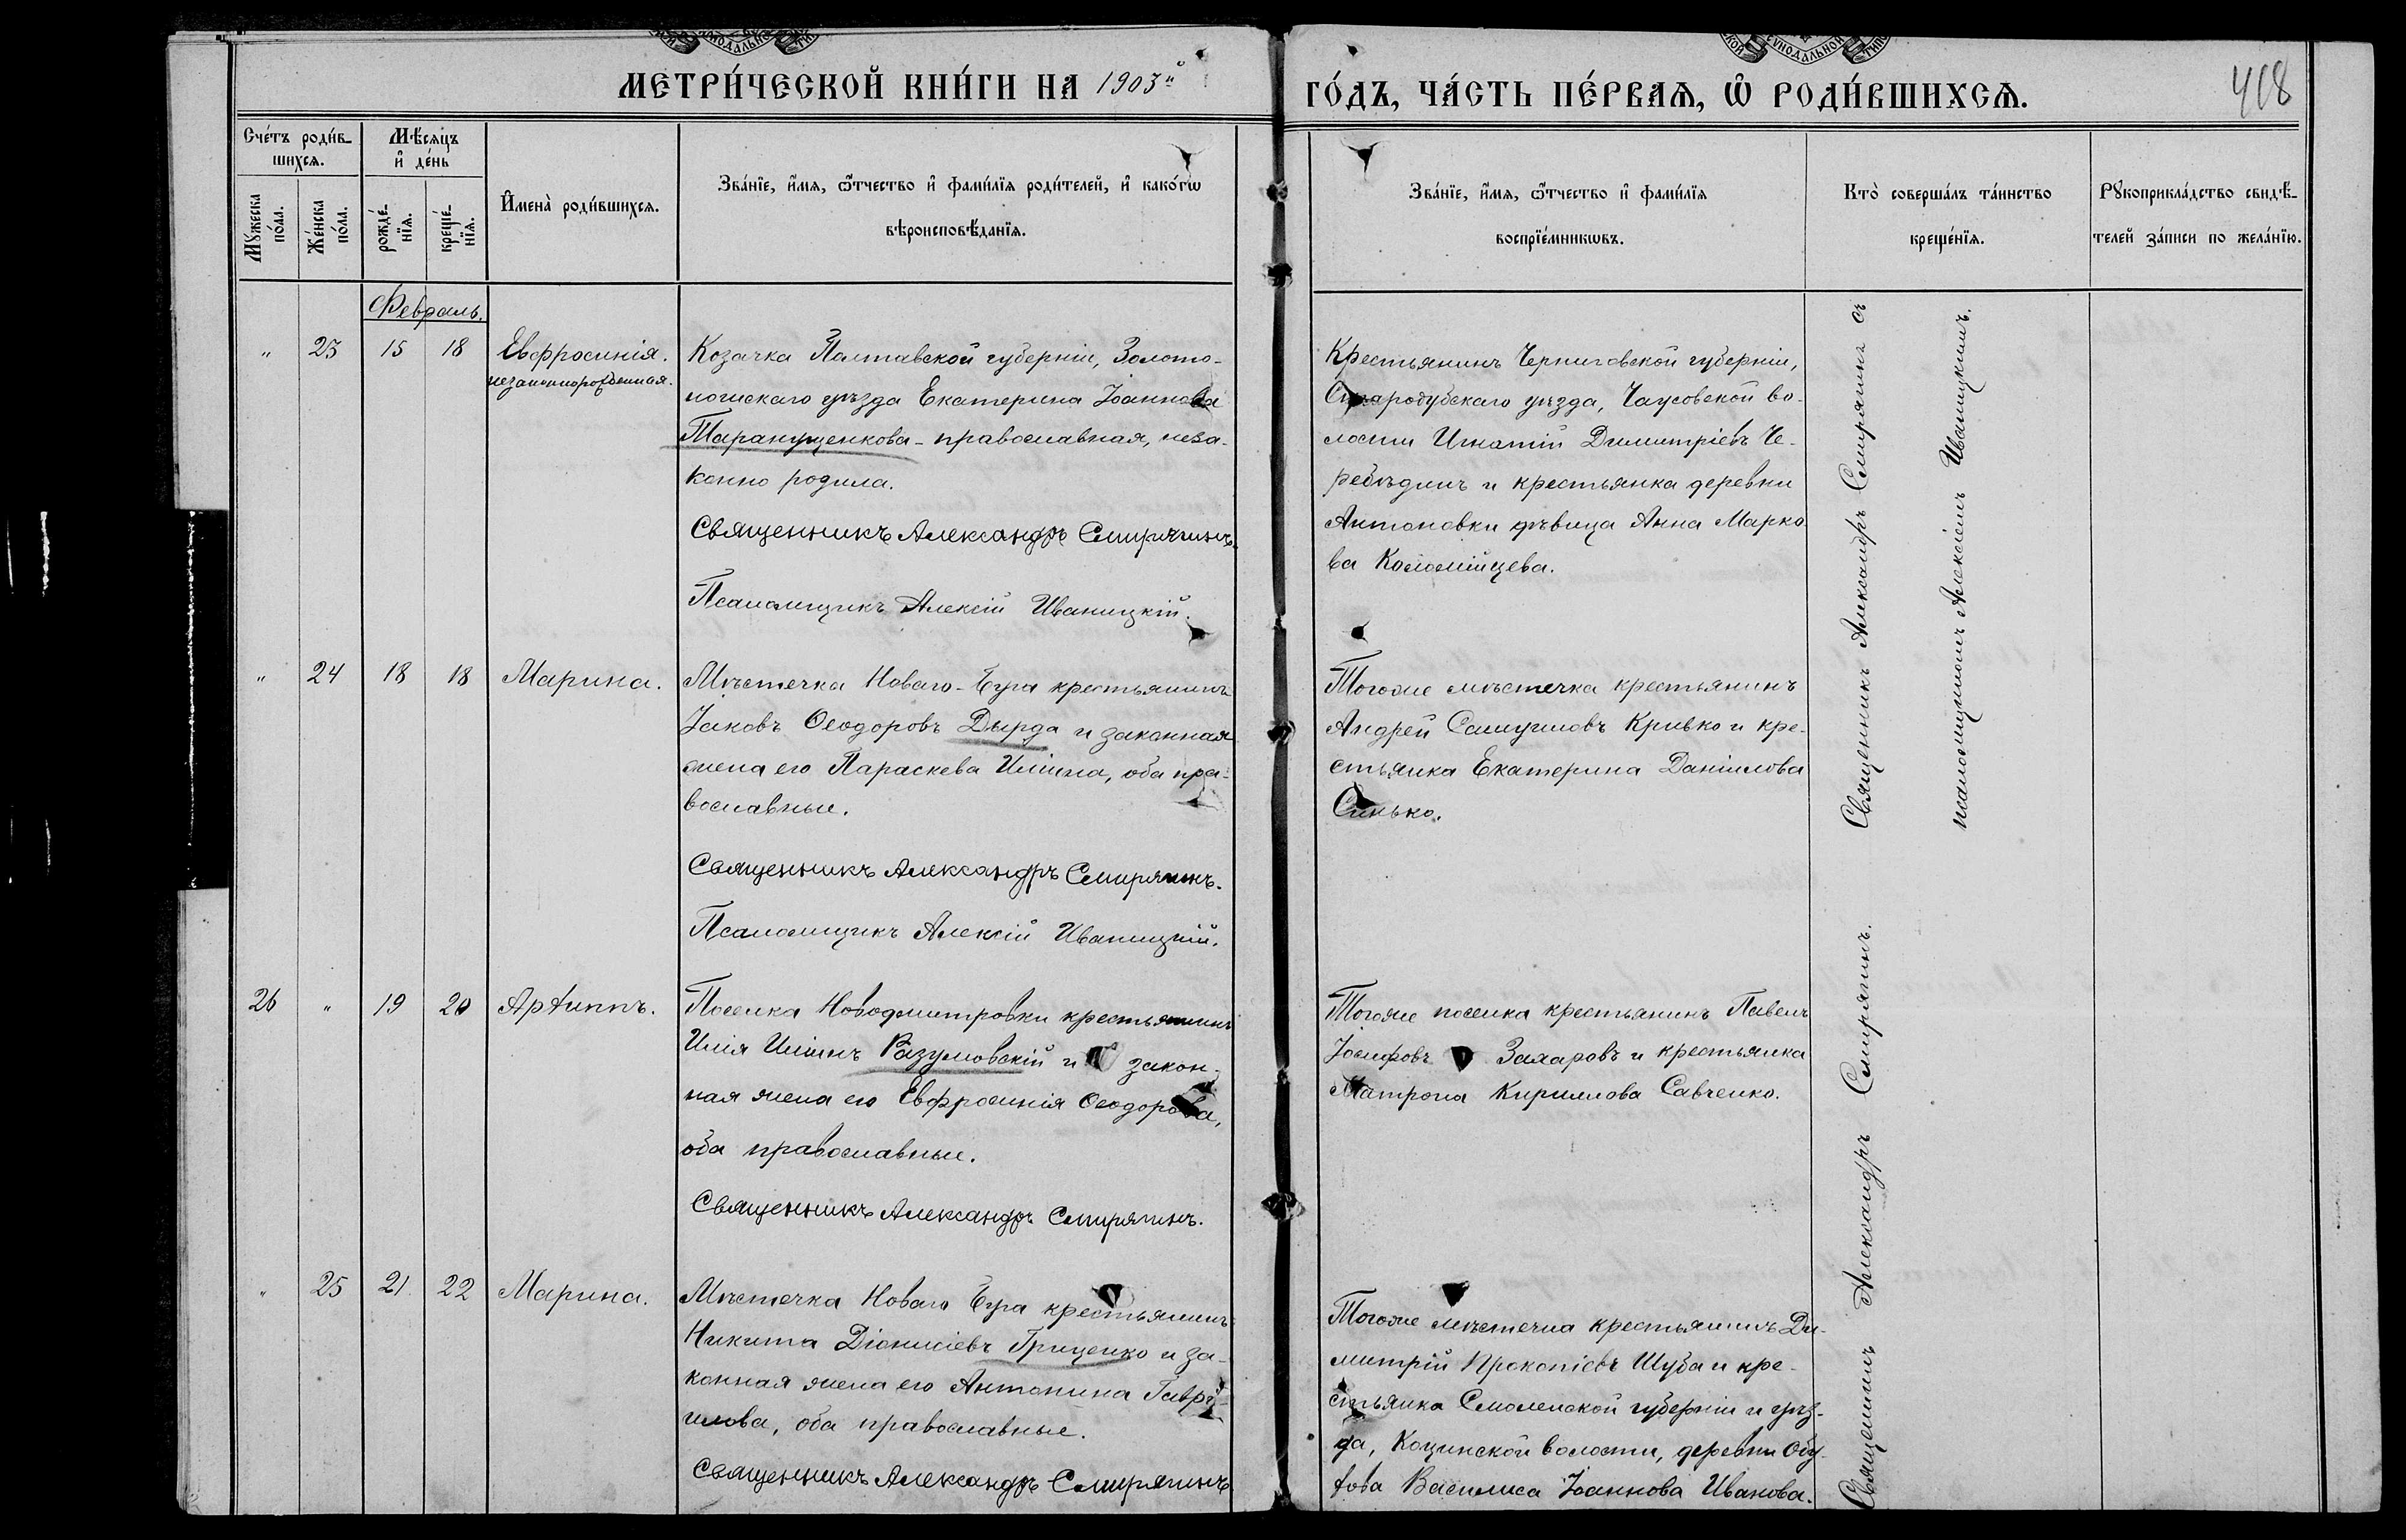 МЕТРИ́ЧЕСКОЙ КНИ́ГИ НА 1903й
ГО́ДЪ, ЧА́СТЬ ПЕ́РВАѦ, Ѡ РОДИ́ВШИХСѦ.
418
Сче́тъ роди́в-
шихсѧ.
Мꙋжеска
по́ла.
Же́нска
по́ла.
Мѣ́сѧцъ
и҆ де́нь
рожде́-
нїѧ.
креще́-
нїѧ.
И҆мена̀ роди́вшихсѧ.
Зва́нїе, и҆́мѧ, ѻ҆́тчество и҆ фами́лїѧ роди́телей, и҆ како́гѡ
вѣроисповѣ́данїѧ.
Зва́нїе, и҆́мѧ, ѻ҆́тчество и҆ фами́лїѧ
воспрїе́мникѡвъ.
Кто̀ соверша́лъ та́инство
креще́нїѧ.
Рꙋкоприкла́дство свидѣ́-
телей за́писи по жела́нїю.
Февраль.
„ 23 15 18 Евфросинія.
незаконнорожденная.
Козачка Полтавской губерніи, Золото-
ношскаго уѣзда Екатерина Іоаннова
Таранущенкова - православная, неза-
конно родила.
Священникъ Александръ Смирягинъ.
Псаломщикъ Алексій Иваницкій.
Крестьянинъ Черниговской губерніи,
Стародубскаго уѣзда, Чаусовской во-
лости Игнатій Димитріевъ Че-
ребѣдинъ и крестьянка деревни
Антоновки дѣвица Анна Марко-
ва Коломійцева.
Священникъ Александръ Смирягинъ съ
псаломщикомъ Алексіемъ Иваницкимъ.
„ 24 18 18 Марина.
Мѣстечка Новаго-Буга крестьянинъ
Іаковъ Ѳеодоровъ Дырда и законная
жена его Параскева Иліина, оба пра-
вославные.
Священникъ Александръ Смирягинъ.
Псаломщикъ Алексій Иваницкій.
Тогоже мѣстечка крестьянинъ
Андрей Самуиловъ Кривко и кре-
стьянка Екатерина Даніилова
Синько.
26 „ 19 20 Архиппъ.
Поселка Новодмитровки крестьянинъ
Илія Иліинъ Разумовскій и закон-
ная жена его Евфросинія Ѳеодорова,
оба православные.
Священникъ Александръ Смирягинъ.
Тогоже поселка крестьянинъ Павелъ
Іосифовъ Захаровъ и крестьянка
Матрона Кириллова Савченко.
Священникъ Александръ Смирягинъ.
„ 25 21 22 Марина.
Мѣстечка Новаго Буга крестьянинъ
Никита Діонисіевъ Гриценко и за-
конная жена его Антонина Гаврі-
илова, оба православные.
Священникъ Александръ Смирягинъ
Тогоже мѣстечка крестьянинъ Ди-
митрій Прокопіевъ Шуба и кре-
стьянка Смоленской губерніи и уѣз-
да, Кощинской волости, деревни Обу-
хова Василиса Іоаннова Иванова.